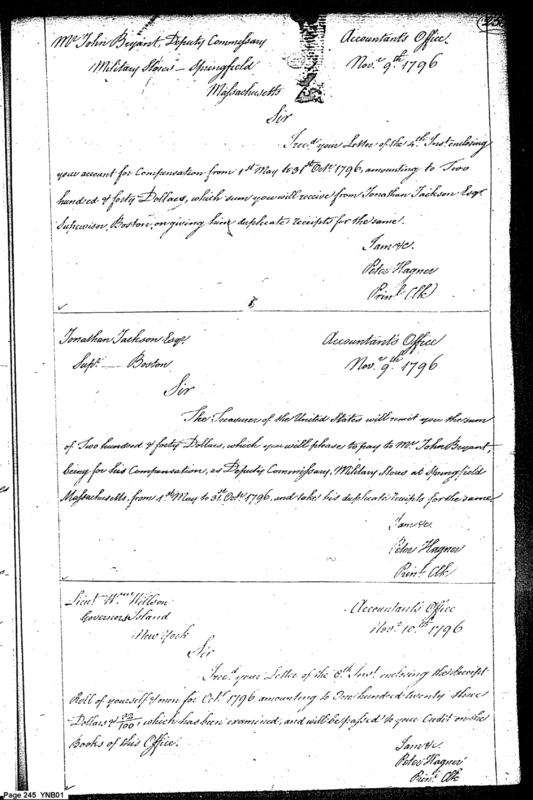 Mr. John Bryant, Deputy Commissary
Military Stores — Springfield
Massachusetts
Accountant's Office
Novr. 9th. 1796
Sir
I recd. your Letter of the 4th Inst. enclosing
your account for Compensation from 1st May to 31st Octr. 1796, amounting to Two
hundred & forty Dollars, which sum you will receive from Jonathan Jackson Esqr.
Supervisor, Boston, on giving him duplicate receipts for the same.
I am &c.
Peter Hagner
Prinl. Clk
Jonathan Jackson Esqr.
Supr. — Boston
Accountant's Office
Novr. 9th. 1796
Sir
The Treasurer of the United States will remit you the sum
of Two hundred & forty Dollars, which you will please to pay to Mr. John Bryant,
being for his Compensation, as Deputy Commissary, Military Stores at Springfield
Massachusetts, from 1st May to 31st Octr. 1796, and take his duplicate receipts for the same
I am &c.
Peter Hagner
Prinl. Clk
Lieut. Wm. Willson
Governors Island
New York
Accountant's Office
Novr. 10th. 1796
Sir
I recd. your Letter of the 8th Inst. enclosing the Receipt
Roll of yourself & men for Octr. 1796 amounting to One hundred twenty three
Dollars & /100 which has been examined, and will be passed to your Credit on the
Books of this Office.
I am &c.
Peter Hagner
Prinl. Clk
Page 245 YNB01